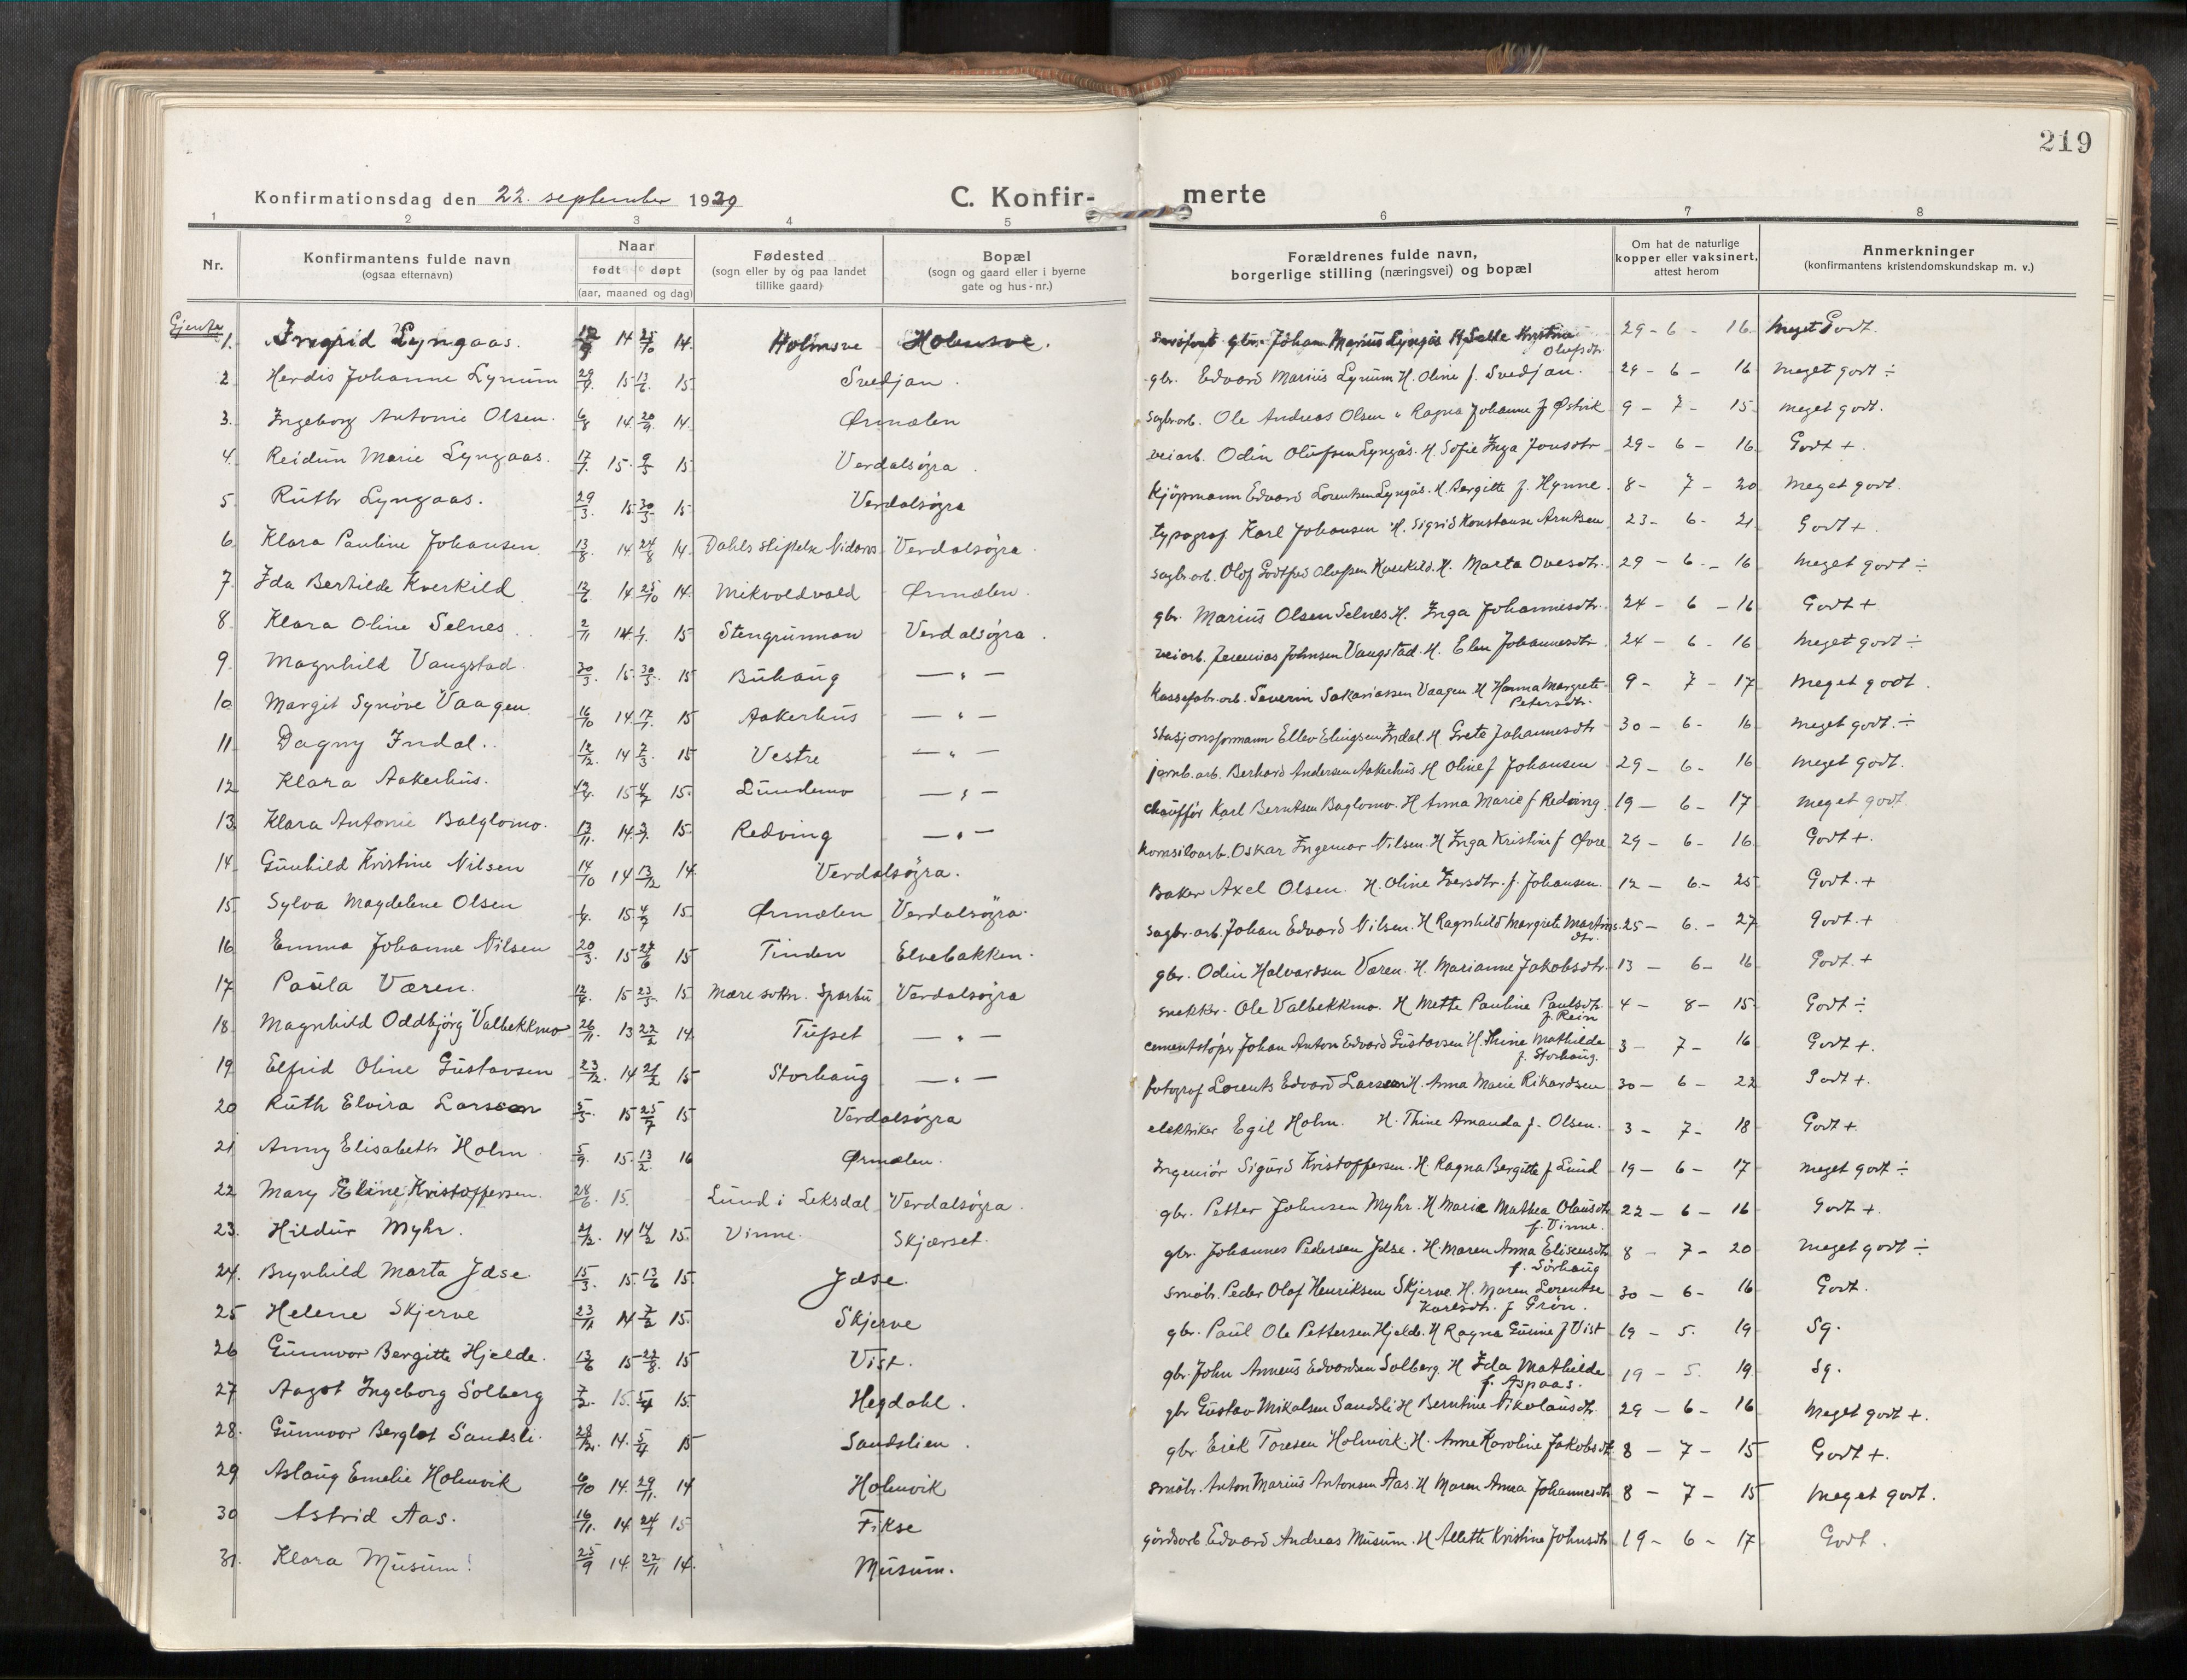 219
Konfirmationsdag den 22. september 1929 C. Konfir- merte
1 2 3 4 5 6 7 8
Nr. Konfirmantens fulde navn (ogsaa efternavn) Naar født døpt (aar, maaned og dag) Fødested (sogn eller by og paa landet tillike gaard) Bopæl (sogn og gaard eller i byerne gate og hus-nr.) Forældrenes fulde navn, borgerlige stilling (næringsvei) og bopæl Om hat de naturlige kopper eller vaksinert, attest herom Anmerkninger (konfirmantens kristendomskundskap m. v.)
Gjenter
1. Ingrid Lyngaas. 14 25/10 14. Holmsve Holmsve. gbr. Johan Marius Lyngås H. Selle Kristina Olufsdtr. 29-6-16 Meget Godt.
2 Herdis Johanne Lynum 15 13/6 15 Svedjan. gbr. Edvard Marius Lynum H. Oline f. Svedjan. 29-6-16 Meget godt ÷
3. Ingeborg Antonie Olsen. 6/8 14. 20/9. 14. Ørmælen sagbr.arb. Ole Andreas Olsen " Ragna Johanne f Østvik 9-7-15 Meget godt.
4. Reidun Marie Lyngaas. 17/1. 15. 9/5 15 Verdalsøgra. veiarb. Odin Olufsen Lyngås. H. Sofie Inga Jonsdtr 29-6-16 Godt +.
5 Ruth Lyngaas. 29/3. 15 30/5 15 Verdalsøgra Kjøpmann Edvard Lorentsen Lyngås. H. Bergitte f. Hynne. 8-7-20 Meget godt.
6. Klara Pauline Johansen. 13/8. 14 24/8 14. Dahls stiftelse Nidaros Verdalsøgra. typograf Karl Johansen H. Sigrid Konstanse Arntsen 23-6-21 Godt +.
7. Ida Bertilde Kverkild 12/6 14 25/10 14. Mikvoldvald Ørmælen. sagbr.arb. Olof Godtfred Olufsen Kverkild. H. Marta Ovesdtr. 29-6-16 Meget godt ÷
8. Klara Oline Selnes. 2/11 14. 1/1. 15 Stengrunnan Verdalsøgra. gbr. Marius Olsen Selnes H. Inga Johannesdtr. 24-6-16 Godt +
9. Magnhild Vangstad. 30/3. 15 30/5. 15 Buhaug — " — veiarb. Jeremias Johnsen Vangstad. H. Elen Johannesdtr 24-6-16 Meget godt ÷
10 Margit Synøve Vaagen. 16/10 14 17/1 15 Aakerhus — " — Kassefabr.arb. Severin Sakariassen Vaagen H Hanna Margrete Petersdtr. 9-7-17 Meget godt.
11 Dagny Indal. 12/12. 14 7/3. 15 Vestre — " — Stasjonsformann Ellev Elingsen Indal. H Grete Johannesdtr 30-6-16 Meget godt. ÷
12 Klara Aakerhus. 15 4/7 15. Lundemo — " — jernb.arb. Berhard Andersen Aakerhus H Oline f Johansen 29-6-16 Meget godt.
13. Klara Antonie Balglomo. 13/11. 14. 15. Redving — " — chauffør Karl Berntsen Baglomo. H Anna Marie f Redving. 19-6-17 Meget godt
14 Gunhild Kristine Nilsen 14/10 14 13/12 14. Verdalsøgra. kornsiloarb. Oskar Ingemar Nilsen. H Inga Kristine f Øvre 29-6-16 Godt +.
15 Sylva Magdelene Olsen 1/4. 15 4/7 15. Ørmælen Verdalsøgra. Baker Axel Olsen. H. Oline Iversdtr. f. Johansen. 12-6-25 Godt. +
16 Emma Johanne Nilsen 20/3. 15 27/6 15 Tinden Elvebakken. sagbr.arb. Johan Edvard Nilsen. H Ragnhild Margrete Martins dtr. 25-6.-27 Godt +
17 Paula Væren. 12/4. 15 23/5. 15 Mære sokn. Sparbu Verdalsøgra gbr. Odin Halvardsen Væren. H. Marianne Jakobsdtr. 13-6-16 Godt. +
18 Magnhild Oddbjørg Valbekkmo 26/11. 13 22/2 14. Tufset — " — snekker. Ole Valbekkmo. H Mette Pauline Paulsdtr. f. Rein 4-8-15 Godt ÷
19 Elfrid Oline Gustavsen 23/12. 14 21/2 15 Storhaug — " — cementstøper Johan Anton Edvard Gustavsen H. Thine Mathilde f. Storhaug. 3-7-16 Godt +.
20 Ruth Elvira Larssen 5/5. 15 25/7 15 Verdalsøgra fotograf Lorents Edvard Larssen H. Anna Marie Rikardsen 30-6-22 Godt +.
21 Anny Elisabeth Holm 5/9. 15. 13/2. 16 Ørmelen. elektriker Egil Holm. H. Thine Amanda f. Olsen. 3-7-18 Godt +
22 Mary Eline Kristoffersen. 28/6 15. Lund i Leksdal Verdalsøgra. Ingeniør Sigurd Kristoffersen. H. Ragna Bergitte f Lund 19-6-17 meget godt ÷
23. Hildur Myhr. 14 14/2 15. Vinne. Skjærset. gbr. Petter Johnsen Myhr. H Marie Mathea Olausdtr f. Vinne. 22-6-16 Godt +.
24. Brynhild Marta Jdse 15/3. 15. 13/6 15. Jdse. gbr. Johannes Pedersen Jdse. H. Maren Anna Elisensdtr f. Sørhaug 8-7-20 meget godt ÷
25 Helene Skjerve 23/11 14 7/2 15. Skjerve småbr. Peder Olaf Henriksen Skjerve H. Maren Lorentse Karlsdtr. f Grön. 30-6-16 Godt.
26 Gunnvor Bergitte Hjelde. 13/6 15 22/8. 15 Vist. gbr. Paul Ole Pettersen Hjelde. H Ragna Gurine f Vist 19-5.-19 Sg.
27 Aagot Ingeborg Solberg 7/2. 15. 5/4 15. Hegdahl. gbr. John Anneus Edvardsen Solberg. H Ida Mathilde f. Aspaas. 19-5.-19 Sg.
28. Gunnvor Berglot Sandsli. 14. 5/4 15 Sandslien. gbr Gustav Mikalsen Sandsli H Berntine Nikolausdtr. 29-6-16 Meget godt +.
29 Aslaug Emelie Holmvik 6/10 14. 29/11. 14 Holmvik gbr. Erik Toresen Holmvik. H. Anne Karoline Jakobsdtr 8-7-15 Godt +.
30 Astrid Aas. 16/11. 14 24/1 15 Fikse småbr. Anton Marius Antonsen Aas. H Maren Anna Johannesdtr 8-7-15 Meget godt.
31. Klara Musum. 25/9 14. 22/11 14. Musum. gårdsarb Edvard Andreas Musum. H Allette Kristine Johnsdtr 19-6-17 Godt.